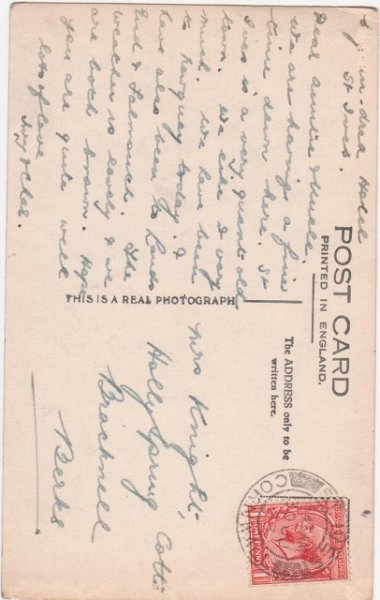 Hotel
St Ives.
Dear Auntie & Uncle.
We are having a fine
time down here. St
Ives is a very quaint old
town. We like it very
much. We have been
to Newquay today. &
have also been to Lands
End & Falmouth. The
weather is lovely & we
are both brown. Hope
you are quite well
lots of love
Ivy &
POST CARD
PRINTED IN ENGLAND.
THIS IS A REAL PHOTOGRAPH
The ADDRESS only to be
written here.
Mrs Knight,
Holly Spring Cotts
Bracknell
Berks